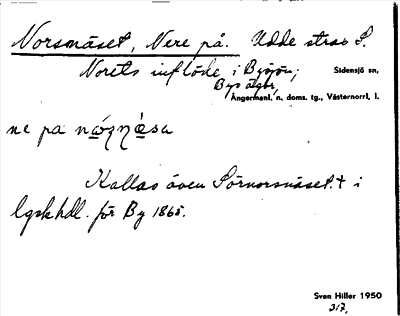 Norsnäset, Nere på. Udde strax S.
Norets inflöde i Bysjön;
Sidensjö sn,
Bys ägor,
Ångermanl. n. doms. tg., Västernorrl. l.
ne pa
Kallas även Sörnorsnäset + i
lgskhdl. för By 1865.
Sven Hiller 1950
317,